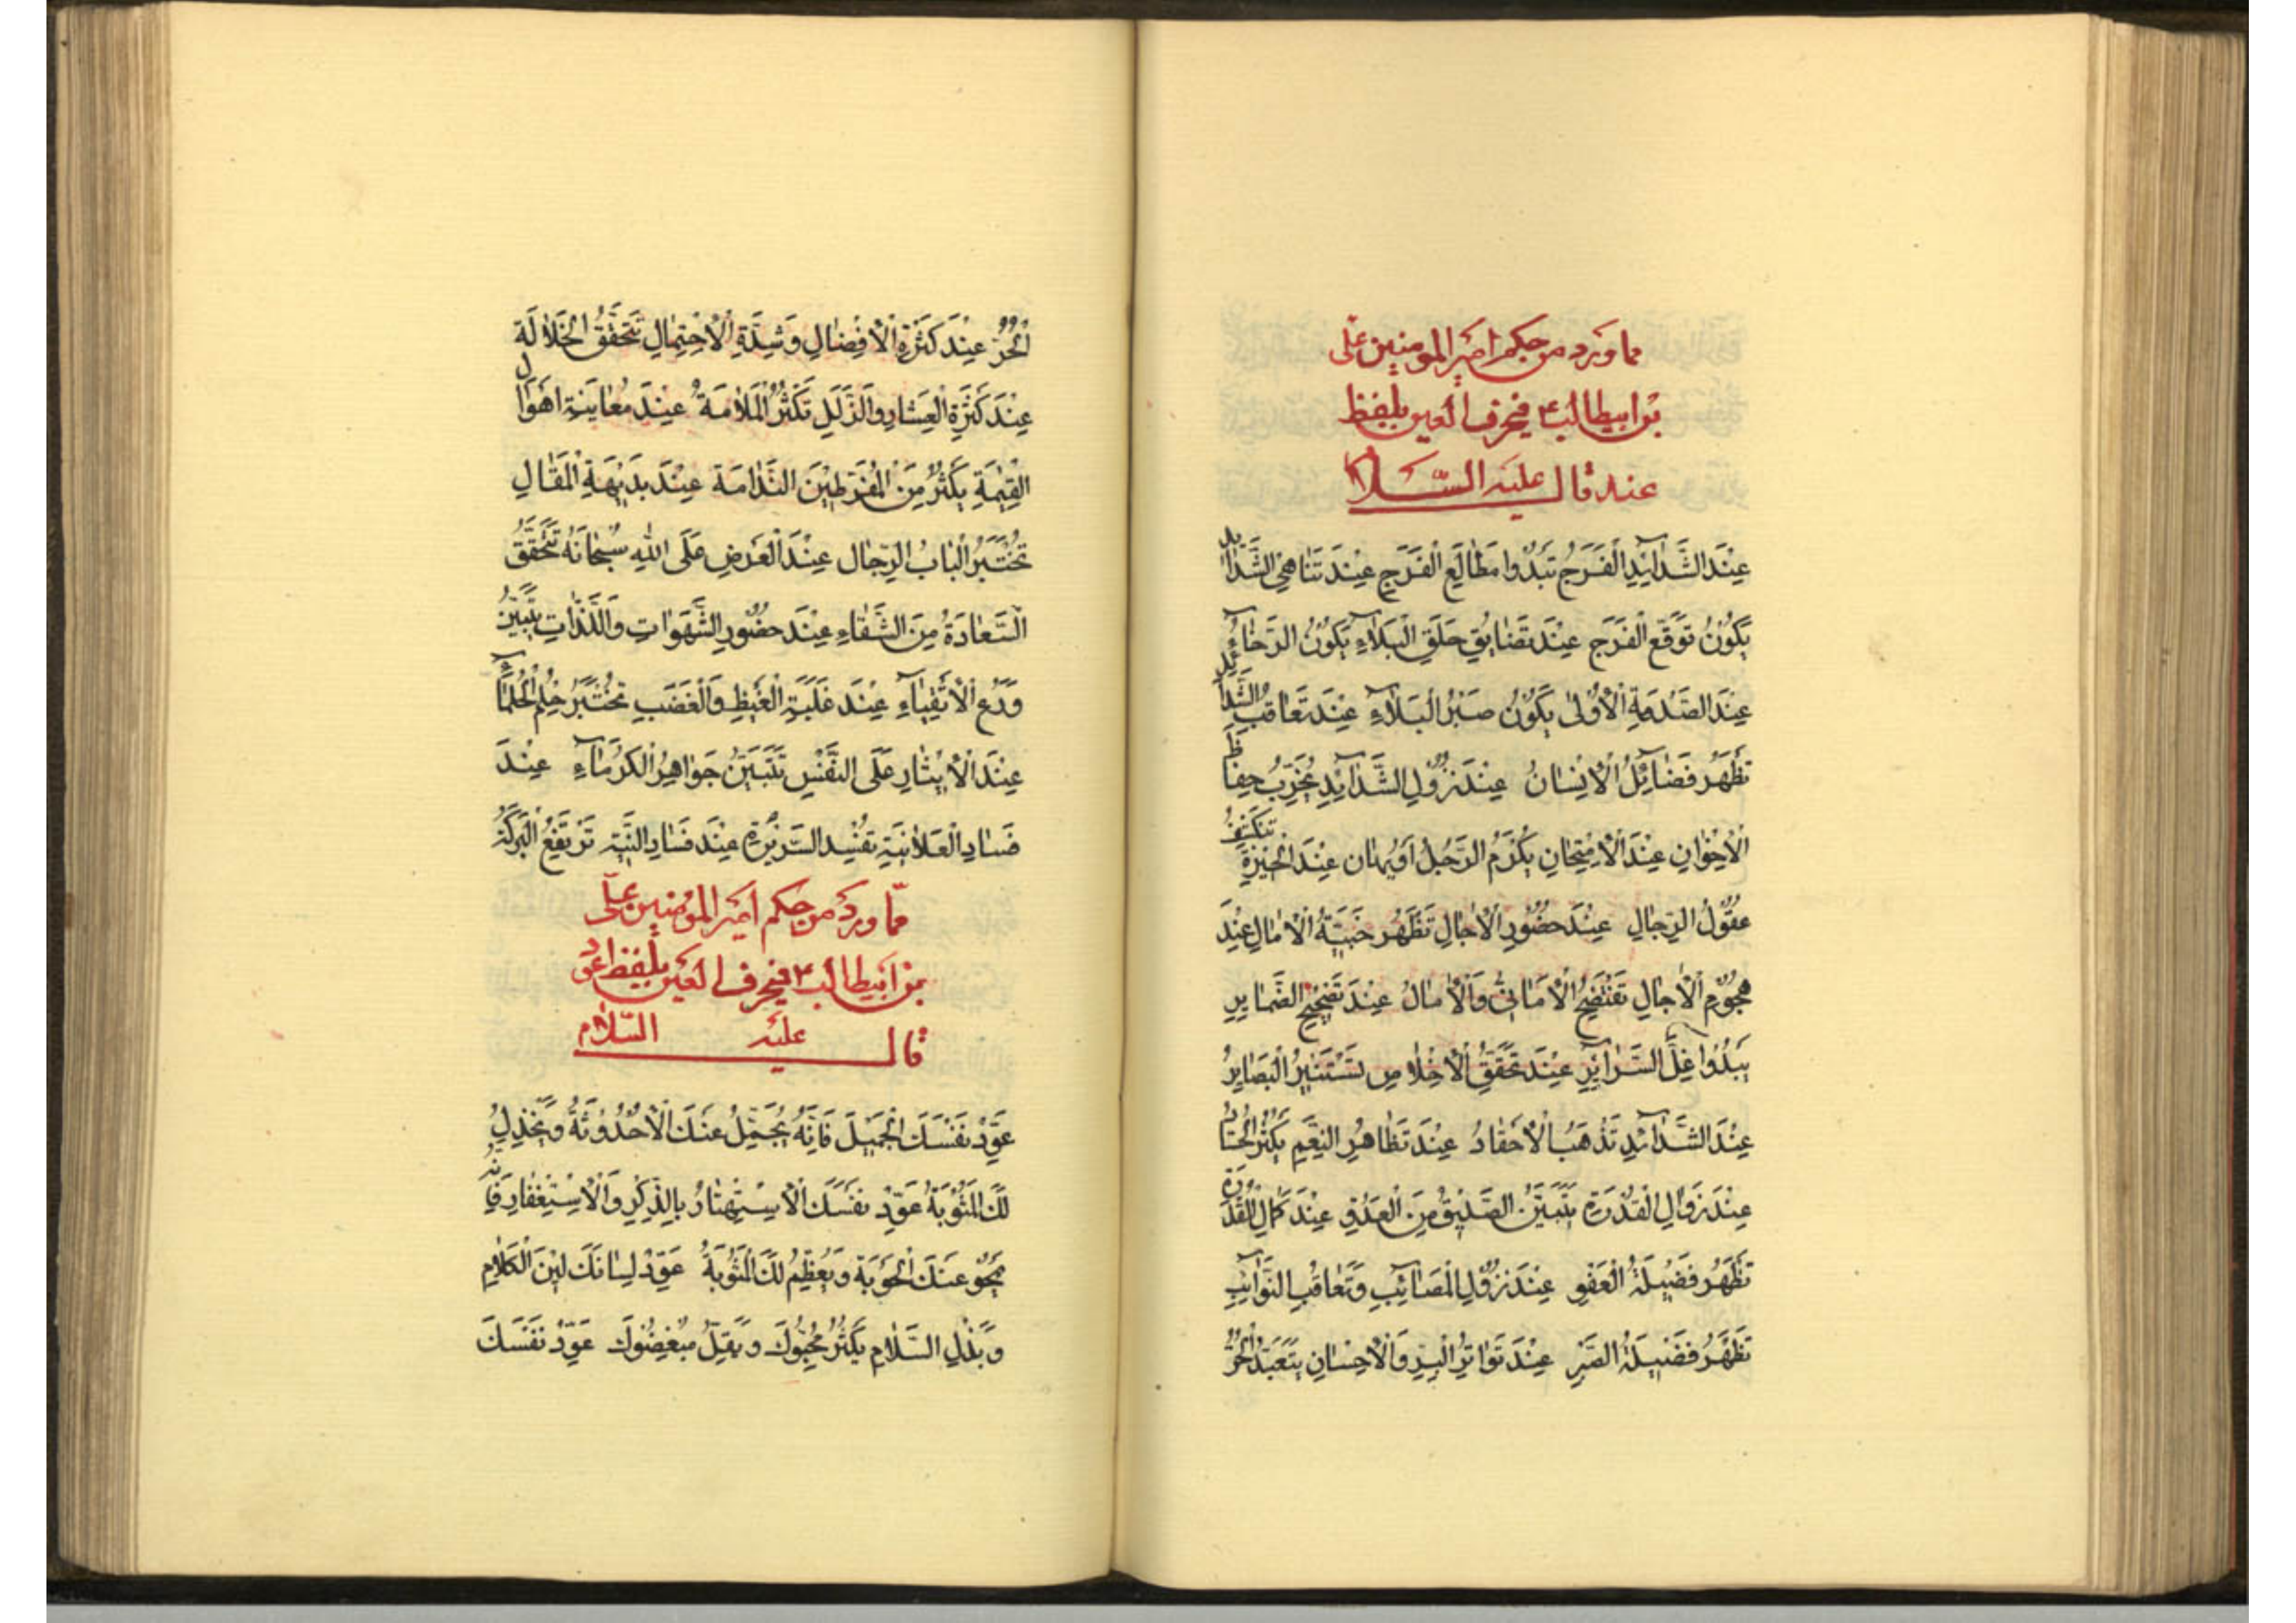 مما ورد من حكم امير المومنين على
بن ابيطالب ع في حرف العين بلفظ
عند قال عليه السلام
عِنْدَ الشَّدَائِدِ الْفَرَجُ تَبْدُوا مَطَالِعُ الْفَرَجِ عِنْدَ تَنَاهِي الشَّدَائِدِ
يَكُونُ تَوَقُّعُ الْفَرَجِ عِنْدَ تَضَايُقِ حَلَقِ الْبَلَاءِ يَكُونُ الرَّخَاءُ
عِنْدَ الصَّدْمَةِ الْأُولَى يَكُونُ صَبْرُ الْبَلَاءِ عِنْدَ تَعَاقُبِ الشَّدَائِدِ
تَظْهَرُ فَضَائِلُ الْإِنْسَانُ عِنْدَ نُزُولِ الشَّدَائِدِ يُجَرَّبُ حِفَاظُ
الْإِخْوَانِ عِنْدَ الْاِمْتِحَانِ يُكْرَمُ الرَّجُلُ اَوْ يُهَان عِنْدَ الْحَيْرَةِ تَنْكَشِفُ
عُقُولُ الرِّجَالِ عِنْدَ حُضُورِ الْآجَالِ تَظْهَرُ خَيْبَةُ الْآمَالِ عِنْدَ
هُجُومِ الْآجَالِ تَفْتَضِحُ الْأَمَانِيُّ وَالْآمَالُ عِنْدَ تَصْحِيحِ الضَّمَايِرِ
يَبْدُوا غِلُّ السَّرَائِرِ عِنْدَ تَحَقُّقِ الْإِخْلَاصِ تَسْتَنِيرُ الْبَصَايِرُ
عِنْدَ الشَّدَائِدِ تَذْهَبُ الْأَحْقَادُ عِنْدَ تَظَاهُرِ النِّعَمِ يَكْثُرُ الْحُسَّادُ
عِنْدَ زَوَالِ الْقُدْرَةِ يَتَبَيَّنُ الصَّدِيقُ مِنَ الْعَدُوِّ عِنْدَ كَمَالِ الْقُدْرَةِ
تَظْهَرُ فَضِيلَةُ الْعَفْوِ عِنْدَ نُزُولِ الْمَصَائِبِ وَتَعَاقُبِ النَّوَائِبِ
تَظْهَرُ فَضِيلَةُ الصَّبْرِ عِنْدَ تَوَاتُرِ الْبِرِّ وَالْاِحْسَانِ يَتَعَبَّدُ الْحُرُّ
الْحُرّ عِنْدَ كَثْرَةِ الْاِفْضَالِ وَشِدَّةِ الْاِحْتِمَالِ تَتَحَقَّقُ الْخَلَالَة
عِنْدَ كَثْرَةِ الْعِثَارِ وَالزَّلَلِ تَكْثُرُ الْمَلَامَةُ عِنْدَ مُعَايَنَةِ اَهْوَال
الْقِيمَةِ يَكْثُرُ مِنَ الْمُفَرِّطِينَ النَّدَامَة عِنْدَ بَدِيهَةِ الْمَقَالِ
تُخْتَبَرُ الْبَابُ الرِّجَال عِنْدَ الْعَرْضِ عَلَى اللهِ سُبْحَانَهُ تَتَحَقَّقُ
السَّعَادَةُ مِنَ الشَّقَاءِ عِنْدَ حُضُورِ الشَّهَوَاتِ وَاللَّذَّاتِ يَتَبَيَّنُ
وَرَعُ الْاَتْقِيَاءِ عِنْدَ غَلَبَةِ الْغَيْظِ وَالْغَضَبِ يُخْتَبَرُ حِلْمُ الْحُلَمَاءِ
عِنْدَ الْاِيثَارِ عَلَى النَّفْسِ تَتَبَيَّنُ جَوَاهِرُ الْكُرَمَاءِ عِنْدَ
فَسَادِ الْعَلَانِيَةِ تَفْسُدُ السَّرِيرَة عِنْدَ فَسَادِ النِّيَّةِ تَرْتَفِعُ الْبَرَكَةُ
ممّا ورد من حكم امير المؤمنين على
بن ابيطالب ع في حرف العين بلفظ عود
قال عليه السّلام
عَوِّدْ نَفْسَكَ الْجَمِيلَ فَاِنَّهُ يُجَمِّلُ عَنْكَ الْاُحْدُوثَةُ وَيُجْزِلُ
لَكَ الْمَثُوبَةُ عَوِّدْ نَفْسَكَ الْاِسْتِهْتَارُ بِالذِّكْرِ وَالْاِسْتِغْفَارِ فَاِنَّهُ
يَمْحُو عَنْكَ الْحَوْبَةَ وَيُعَظِّمُ لَكَ الْمَثُوبَةُ عَوِّدْ لِسَانَكَ لِينَ الْكَلَامِ
وَبَذْلِ السَّلَامِ يَكْثُرُ مُحِبُّوكَ وَيَقِلُّ مُبْغِضُوكَ عَوِّدْ نَفْسَكَ